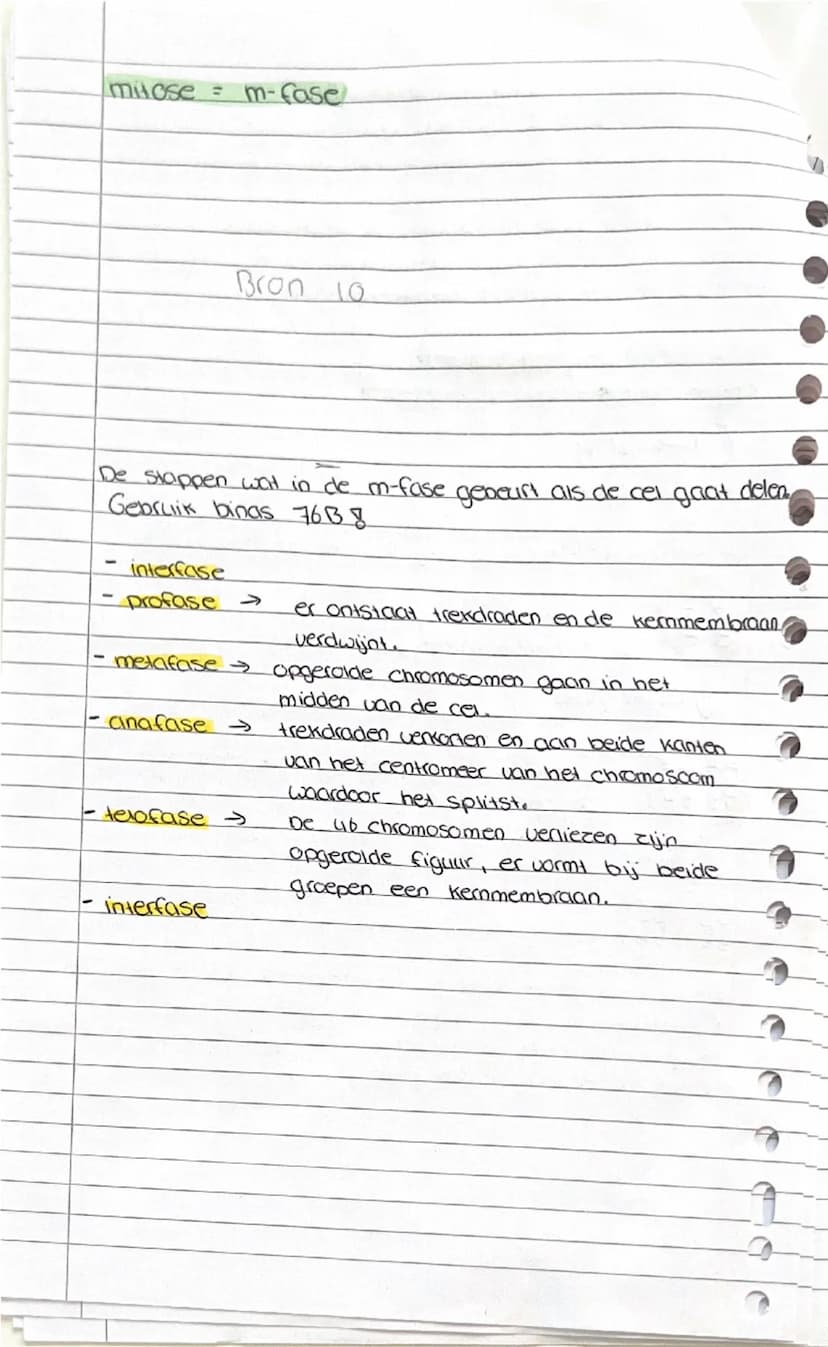 mitose = m-fase
Bron 10
De stappen wat in de m-fase gebeurt als de cel gaat delen.
Gebruik binas 76B 8
- interfase
- profase → er ontstaat trekdraden en de kernmembraan
verdwijnt.
- metafase → opgerolde chromosomen gaan in het
midden van de cel.
- anafase → trekdraden verkorten en aan beide kanten
van het centromeer van het chromosoom
waardoor het splitst.
- telofase → De 46 chromosomen verliezen zijn
opgerolde figuur, er vormt bij beide
groepen een kernmembraan.
- interfase